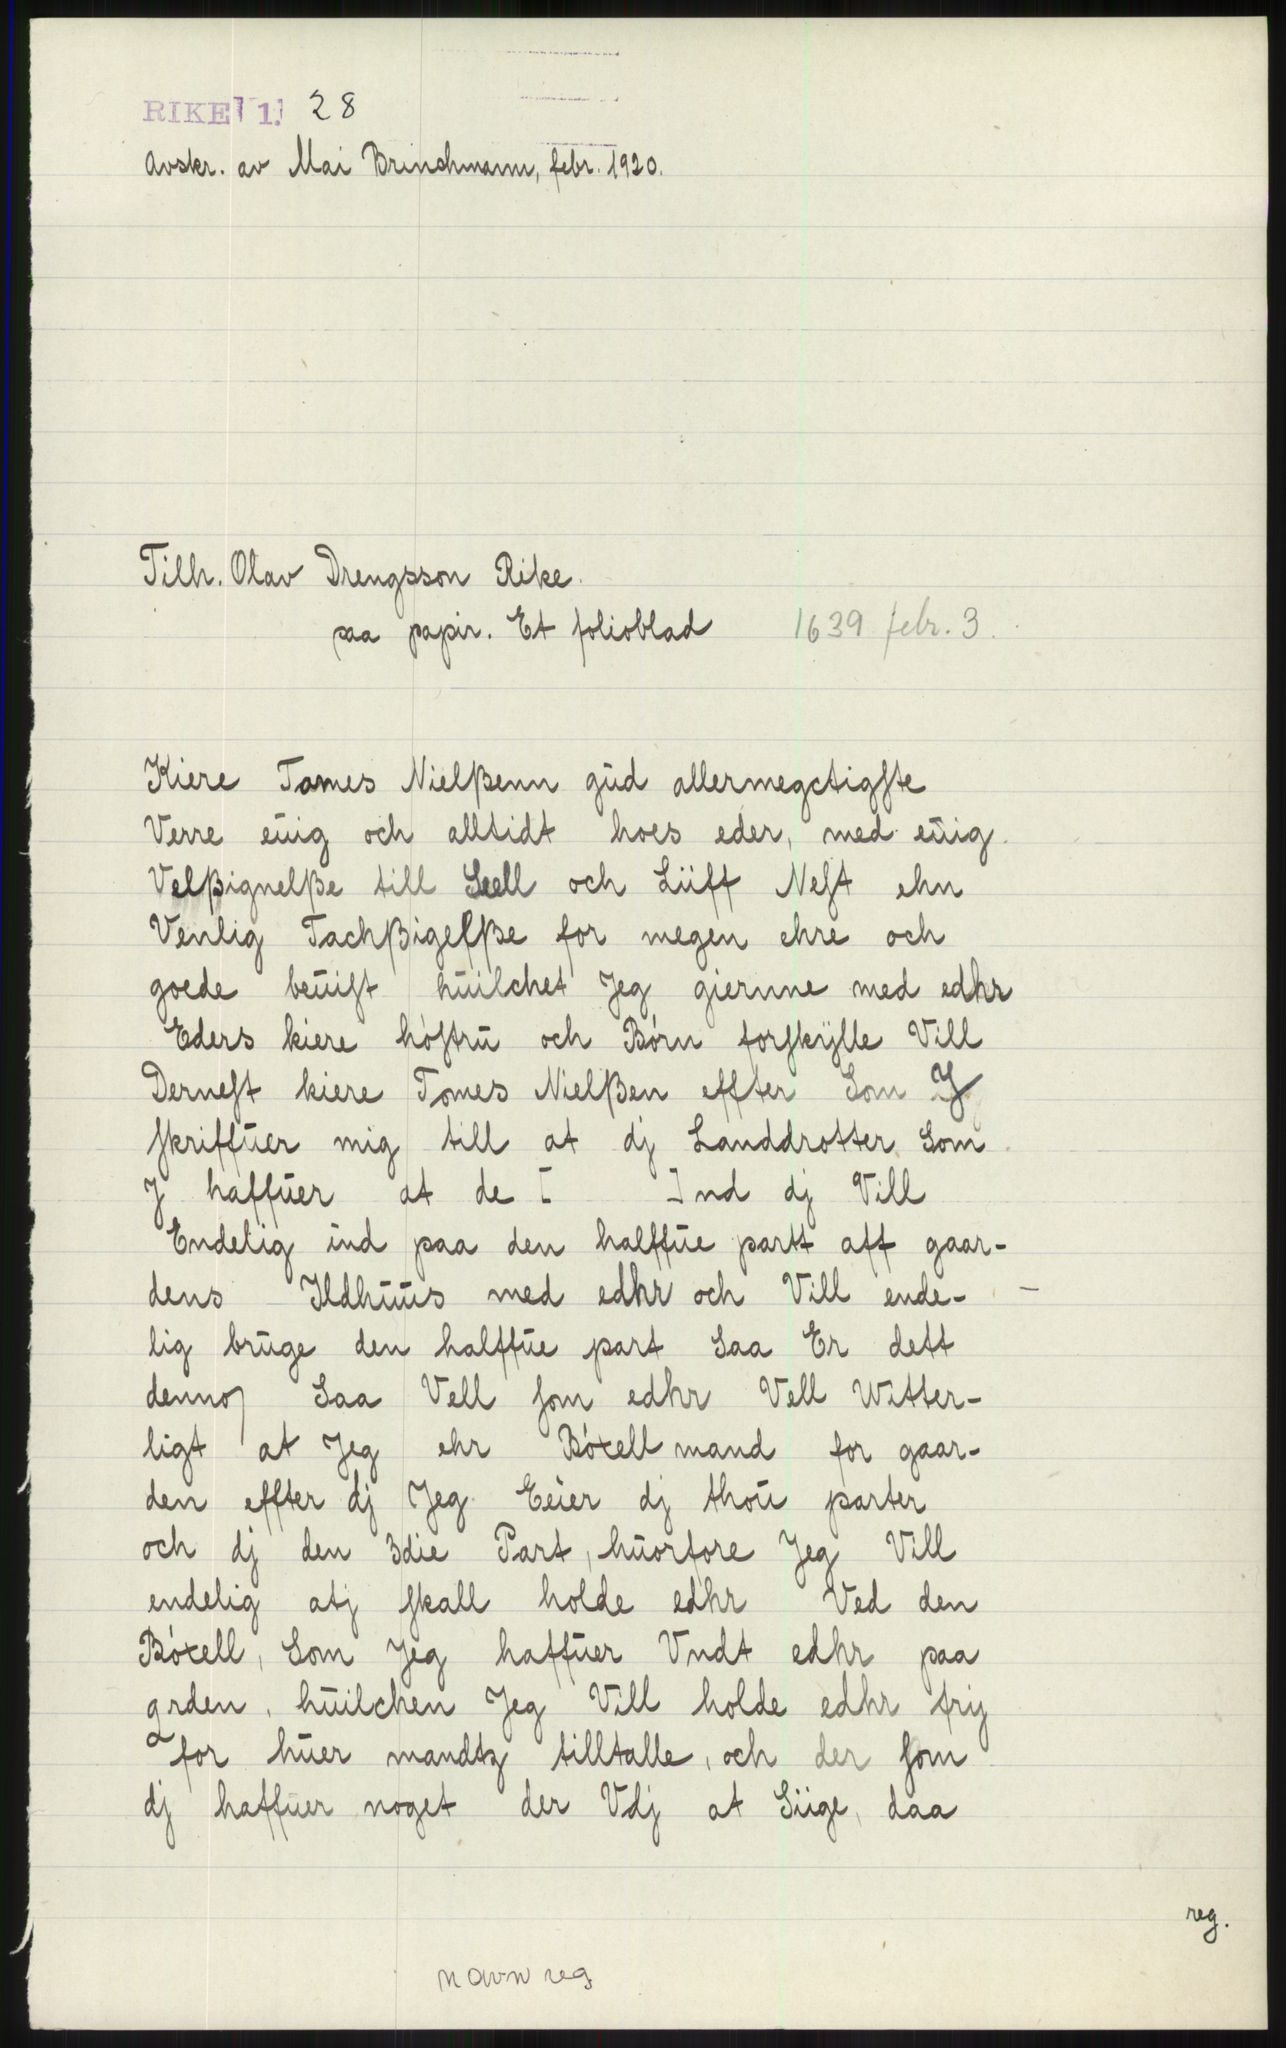 RIKE 1. 28
Avskr. av Mai Brinchmann, febr. 1920.
Tilh. Olav Drengsson Rike.
paa papir. Et folioblad 1639 febr. 3.
Kiere Tomes Nielßenn gŭd allermegctigste
Verre eŭig och alltidt hoes eder, med eŭig
Velßignelße till Seell och Liiff Nest ehn
Venlig Tachßigelße for megen ehre och
goede beŭist hŭilchet Jeg giernne med edhr
Eders kiere hóstrŭ och Bórn forskÿlle Vill
Dernest kiere Tomes Nielßen effter Som J
skriffŭer mig till at dj Landdrotter Som
J haffŭer at de [ ]nd dj Vill
Endelig ind paa den halffŭe partt aff gaar-
dens Ildhŭŭs med edhr och Vill ende-
lig brŭge den halffŭe part Saa Er dett
denno) Saa Vell som edhr Vell Witter-
ligt at Jeg ehr Bóxell mand for gaar-
den effter dj Jeg Eŭer dj thoŭ parter
och dj den 3die Part, hŭorfore Jeg Vill
endelig atj skall holde edhr Ved den
Bóxell, Som Jeg haffŭer Vndt edhr paa
grden, hŭilchen Jeg Vill holde edhr frij
for hŭer mandtz tilltalle, och der som
dj haffŭer noget der Vdj at Siige, daa
reg.
navn reg